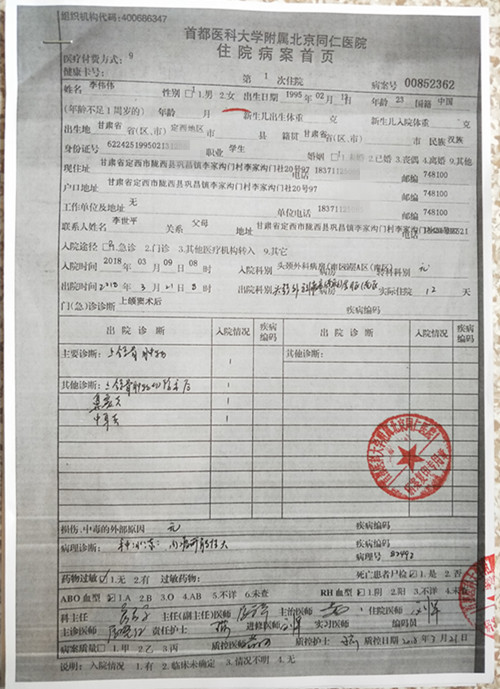 组织机构代码:400686347
首都医科大学附属北京同仁医院
住院病案首页
医疗付费方式: 9
健康卡号: 第 1 次住院 病案号 00852362
姓名 李伟伟 性别 1 1.男 2.女 出生日期 1995 年 02 月 年龄 23 国籍 中国
(年龄不足1周岁的) 年龄 月 新生儿出生体重 克 新生儿入院体重 克
出生地 甘肃省 省(区、市) 定西地区 市 县 籍贯 甘肃省 省(区、市) 市 民族 汉族
身份证号 622425199502 职业 学生 婚姻 2.已婚 3.丧偶 4.离婚 9.其他
现住址 甘肃省定西市陇西县巩昌镇李家沟门村李家沟门社20号97 电话 18371 邮编 748100
户口地址 甘肃省定西市陇西县巩昌镇李家沟门村李家沟门社20号97 邮编 748100
工作单位及地址 无 单位电话 18371 邮编 748100
联系人姓名 李世平 关系 父母 地址 甘肃省定西市陇西县巩昌镇李家沟门村李家沟门社20号97 电话
入院途径 1.急诊 2.门诊 3.其他医疗机构转入 9.其它
入院时间 2018 年 03 月 09 日 08 时 入院科别 头颈外科病房 病房 转科科别 无
出院时间 2018 年 3 月 21 日 8 时 出院科别 病房 实际住院 12 天
门(急)诊诊断 上颌窦术后 疾病编码
出院诊断 入院情况 疾病编码 出院诊断 入院情况 疾病编码
主要诊断: 上颌骨肿物 1 其他诊断:
其他诊断: 上颌骨肿物切除术后 1
鼻窦炎 1
中耳炎 1
损伤、中毒的外部原因 无 疾病编码
病理诊断: 疾病编码
病理号
药物过敏 1.无 2.有 过敏药物: 死亡患者尸检 1.是 2.否
ABO血型 1.A 2.B 3.O 4.AB 5.不详 6.未查 RH血型 1.阴 2.阳 3.不详 4.未查
科主任 主任(副主任)医师 主治医师 住院医师
主诊医师 责任护士 进修医师 实习医师 编码员
病案质量 1.甲 2.乙 3.丙 质控医师 质控护士 质控日期 2018 年 3 月 21 日
说明: 入院情况 1.有 2.临床未确定 3.情况不明 4.无